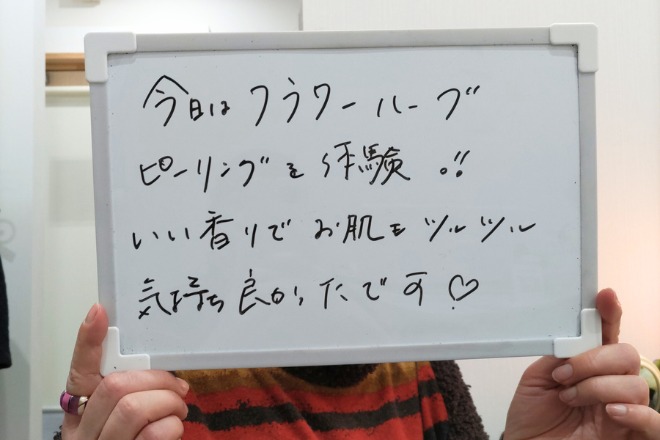 今日はフラワーハーブ
ピーリングを体験!!
いい香りでお肌もツルツル
気持ち良かったです♡